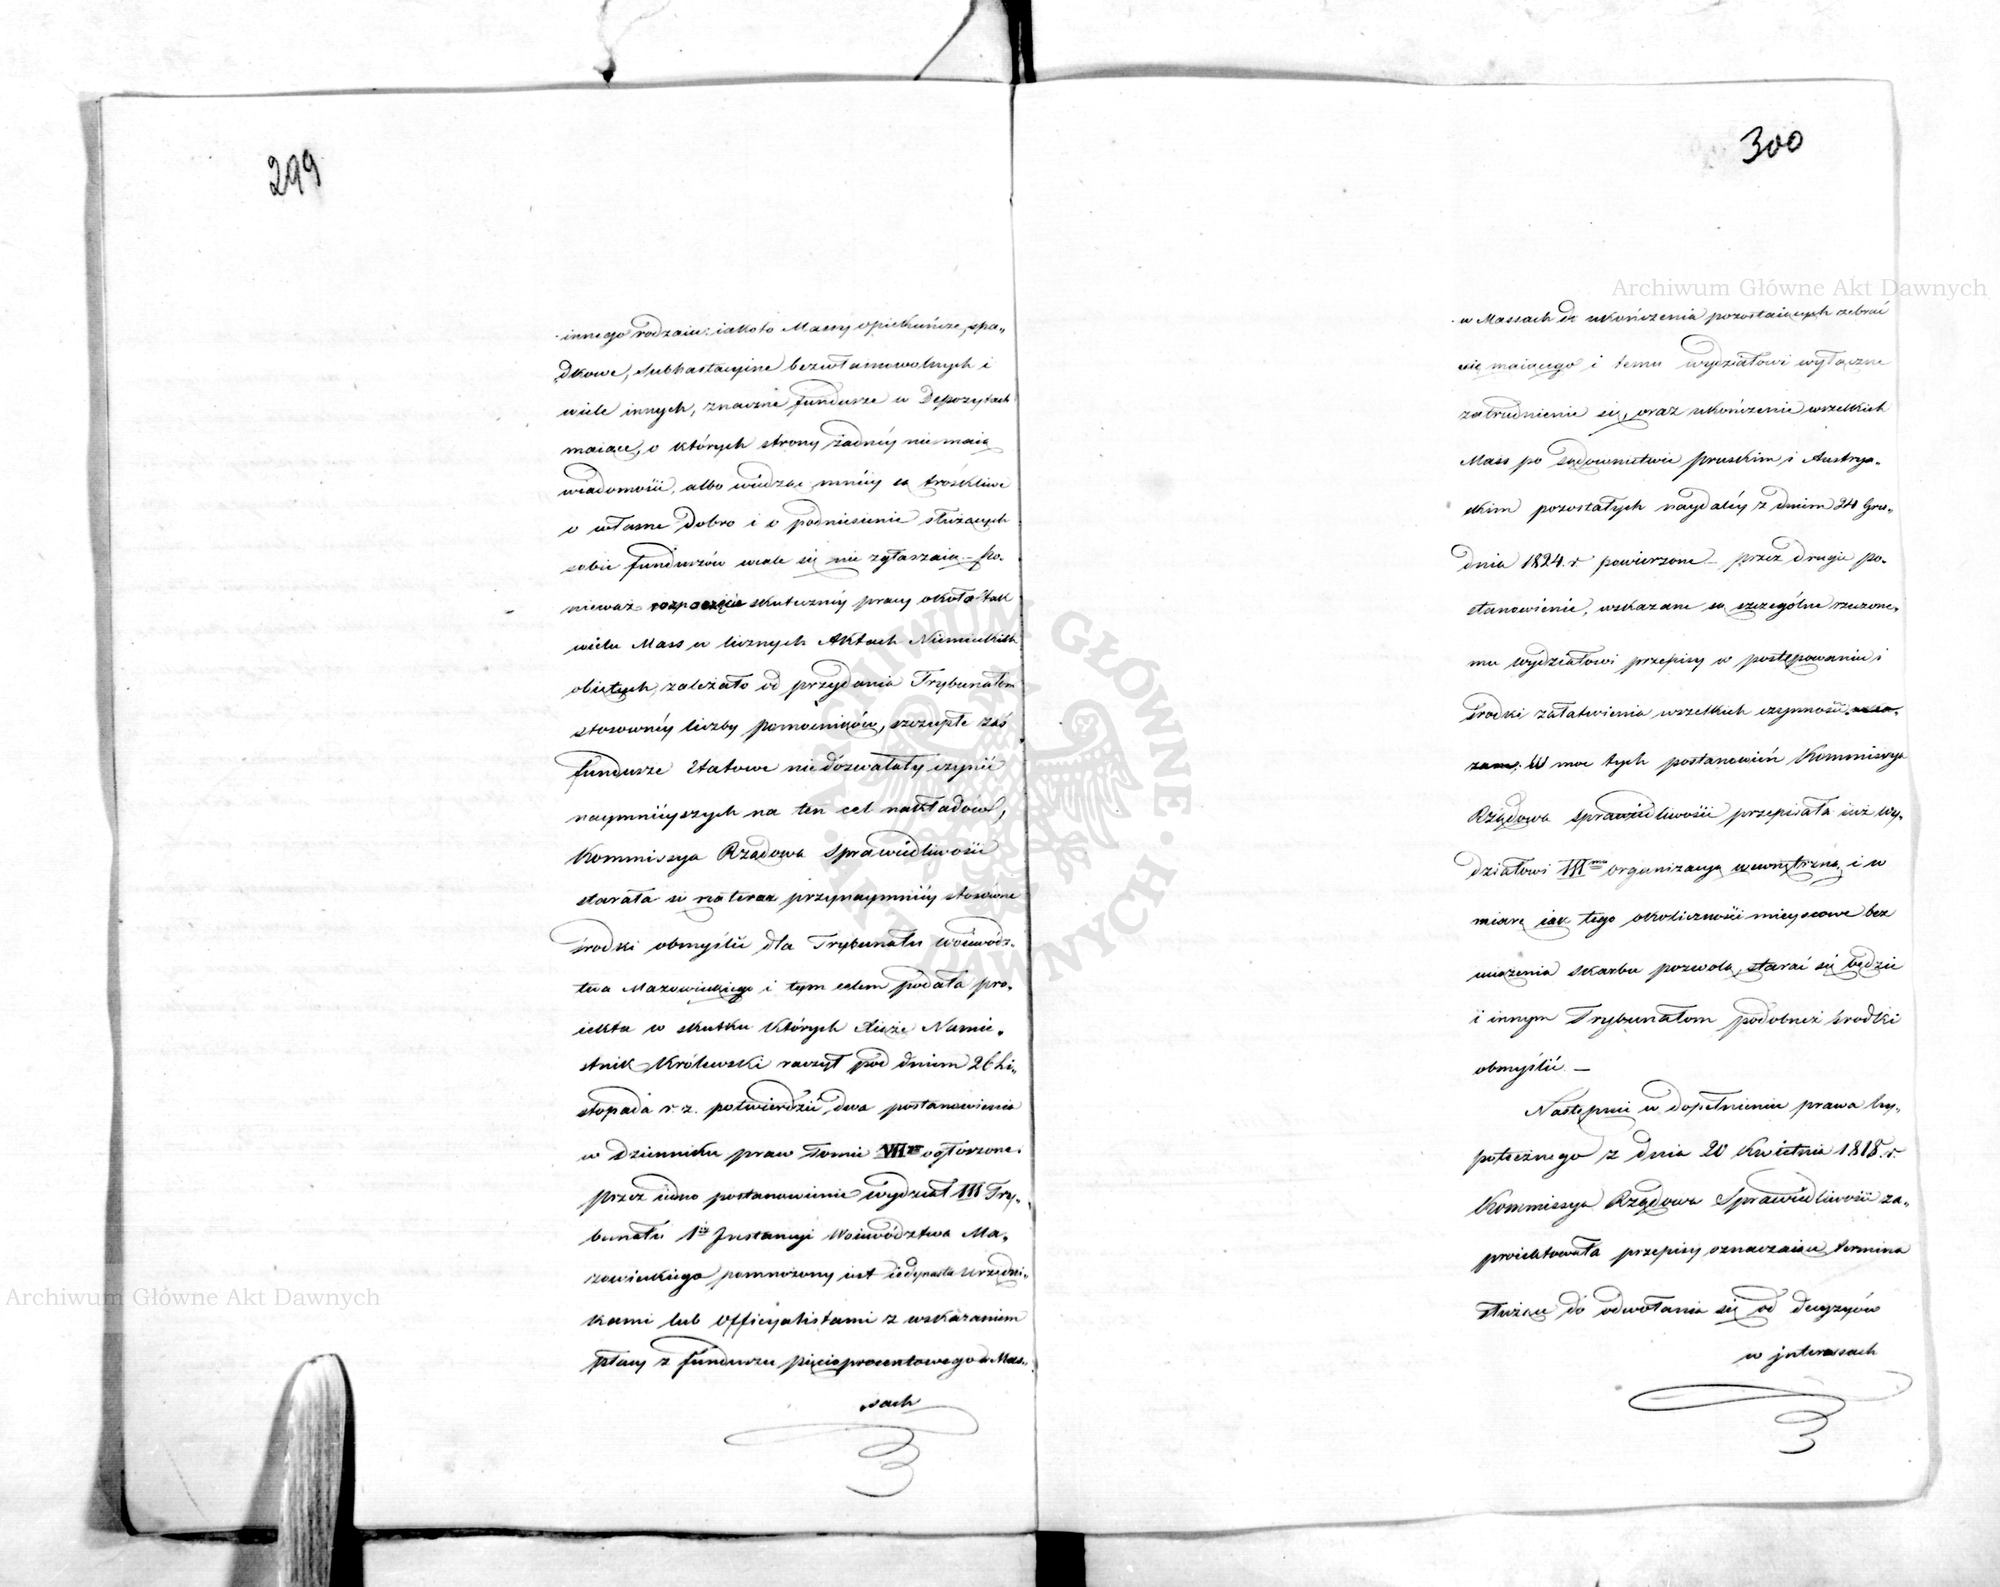 299
innego rodzaiu: iakoto Massy opiekuńcze, spa-
dkowe, Subhastacyine bezwłasnowolnych i
wiele innych, znaczne fundusze w Depozytach
maiące, o których strony żadnéy nie maią
wiadomości, albo wiedząc mniéy są troskliwe
o własne dobro i o podniesienie służących
sobie funduszów wcale się nie zgłaszaią. – Po-
nieważ rozpoczęcie skutecznéy pracy około tak
wielu Mass w licznych Aktach Niemieckich
obiętych, zależało od przydania Trybunałom
stosownéy liczby pomocników, szczupłe zaś
fundusze Etatowe nie dozwalały czynić
naymnieyszych na ten cel nakładów,
Kommissya Rządowa Sprawiedliwości
starała się na teraz przynaymniéy stosowne
środki obmyślić dla Trybunału Woiewódz-
twa Mazowieckiego i tym celem podała pro-
iekta w skutku których Xiąże Namie-
stnik Królewski raczył pod dniem 26 Li-
stopada r. z. potwierdzić, dwa postanowienia
w Dzienniku praw Tomie VIII ogłoszone.
przez iedno postanowienie wydział III Try-
bunału 1éy Instancyi Woiewództwa Ma-
zowieckiego pomnożony iest iedynastu Urzędni-
kami lub Officyalistami z wskazaniem
płacy z funduszu pięcioprocentowego w Mas-
sach
300
w Massach do ukończenia pozostaiących zebrać
się maiącego i temu wydziałowi wyłączne
zatrudnienie się, oraz ukończenie wszelkich
Mass po sądownictwie pruskim i Austrya-
ckim pozostałych naydaléy z dniem 24 Gru-
dnia 1824. r. powierzone – przez drugie po-
stanowienie, wskazane są szczególne rzeczone-
mu Wydziałowi przepisy w postępowaniu i
środki załatwienia wszelkich czynności
W moc tych postanowień Kommissya
Rządowa Sprawiedliwości przepisała iuż Wy-
działowi III mu organizacyą wewnętrzną, i w
miarę iak tego okoliczności mieyscowe bez
uciążenia Skarbu pozwolą, starać się będzie
i innym Trybunałom podobneż środki
obmyślić. –
Następnie w dopełnieniu prawa hy-
potecznego z dnia 20 Kwietnia 1818. r.
Kommissya Rządowa Sprawiedliwości za-
proiektowała przepisy oznaczaiące termina
służące do odwołania się od decyzyów
w interessach
Archiwum Główne Akt Dawnych
Archiwum Główne Akt Dawnych
ARCHIWUM GŁÓWNE · AKT DAWNYCH ·